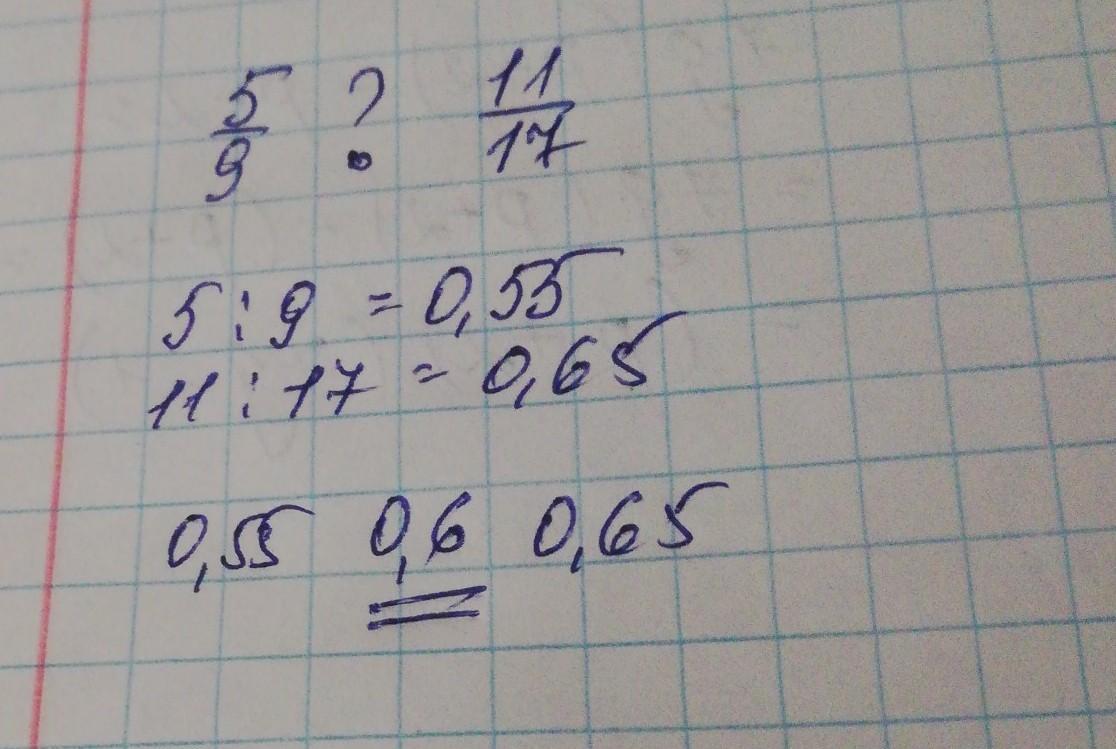 5/9 ? 11/17
5 : 9 = 0,55
11 : 17 = 0,65
0,55 0,6 0,65